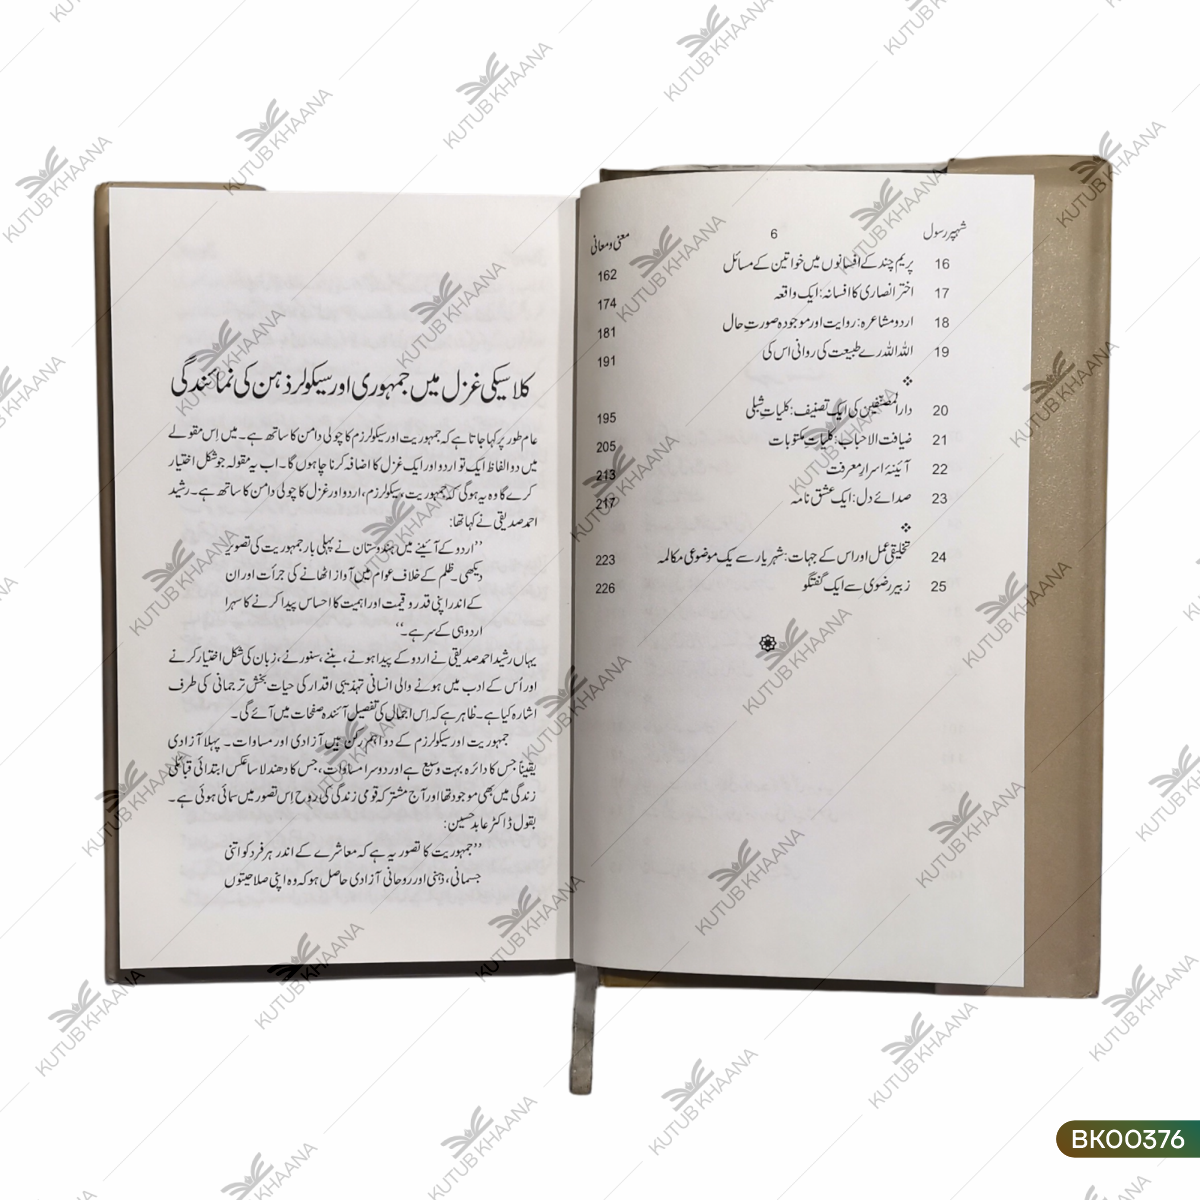 شہپر رسول 6 معنی و معانی
16 پریم چند کے افسانوں میں خواتین کے مسائل 162
17 اختر انصاری کا افسانہ: ایک واقعہ 174
18 اردو مشاعرہ: روایت اور موجودہ صورتِ حال 181
19 اللہ اللہ رے طبیعت کی روانی اس کی 191
20 دارالمصنّفین کی ایک تصنیف: کلیاتِ شبلی 195
21 ضیافت الاحباب: کلیاتِ مکتوبات 205
22 آئینۂ اسرارِ معرفت 213
23 صدائے دل: ایک عشق نامہ 217
24 تخلیقی عمل اور اس کے جہات: شہریار سے یک موضوعی مکالمہ 223
25 زبیر رضوی سے ایک گفتگو 226
کلاسیکی غزل میں جمہوری اور سیکولر ذہن کی نمائندگی
عام طور پر کہا جاتا ہے کہ جمہوریت اور سیکولرزم کا چولی دامن کا ساتھ ہے۔ میں اِس مقولے
میں دو الفاظ ایک تو اردو اور ایک غزل کا اضافہ کرنا چاہوں گا۔ اب یہ مقولہ جو شکل اختیار
کرے گا وہ یہ ہوگی کہ جمہوریت، سیکولرزم، اردو اور غزل کا چولی دامن کا ساتھ ہے۔ رشید
احمد صدیقی نے کہا تھا:
’’اردو کے آئینے میں ہندوستان نے پہلی بار جمہوریت کی تصویر
دیکھی۔ ظلم کے خلاف عوام میں آواز اٹھانے کی جرأت اور ان
کے اندر اپنی قدر و قیمت اور اہمیت کا احساس پیدا کرنے کا سہرا
اردو ہی کے سر ہے۔‘‘
یہاں رشید احمد صدیقی نے اردو کے پیدا ہونے، بننے، سنورنے، زبان کی شکل اختیار کرنے
اور اُس کے ادب میں ہونے والی انسانی تہذیبی اقدار کی حیات بخش ترجمانی کی طرف
اشارہ کیا ہے۔ ظاہر ہے کہ اِس اجمال کی تفصیل آئندہ صفحات میں آئے گی۔
جمہوریت اور سیکولرزم کے دو اہم رکن ہیں آزادی اور مساوات۔ پہلا آزادی
یقیناً جس کا دائرہ بہت وسیع ہے اور دوسرا مساوات، جس کا دھندلا سا عکس ابتدائی قبائلی
زندگی میں بھی موجود تھا اور آج مشترکہ قومی زندگی کی روح اِس تصور میں سمائی ہوئی ہے۔
بقول ڈاکٹر عابد حسین:
’’جمہوریت کا تصور یہ ہے کہ معاشرے کے اندر ہر فرد کو اتنی
جسمانی، ذہنی اور روحانی آزادی حاصل ہو کہ وہ اپنی صلاحیتوں
KUTUB KHAANA
BK00376